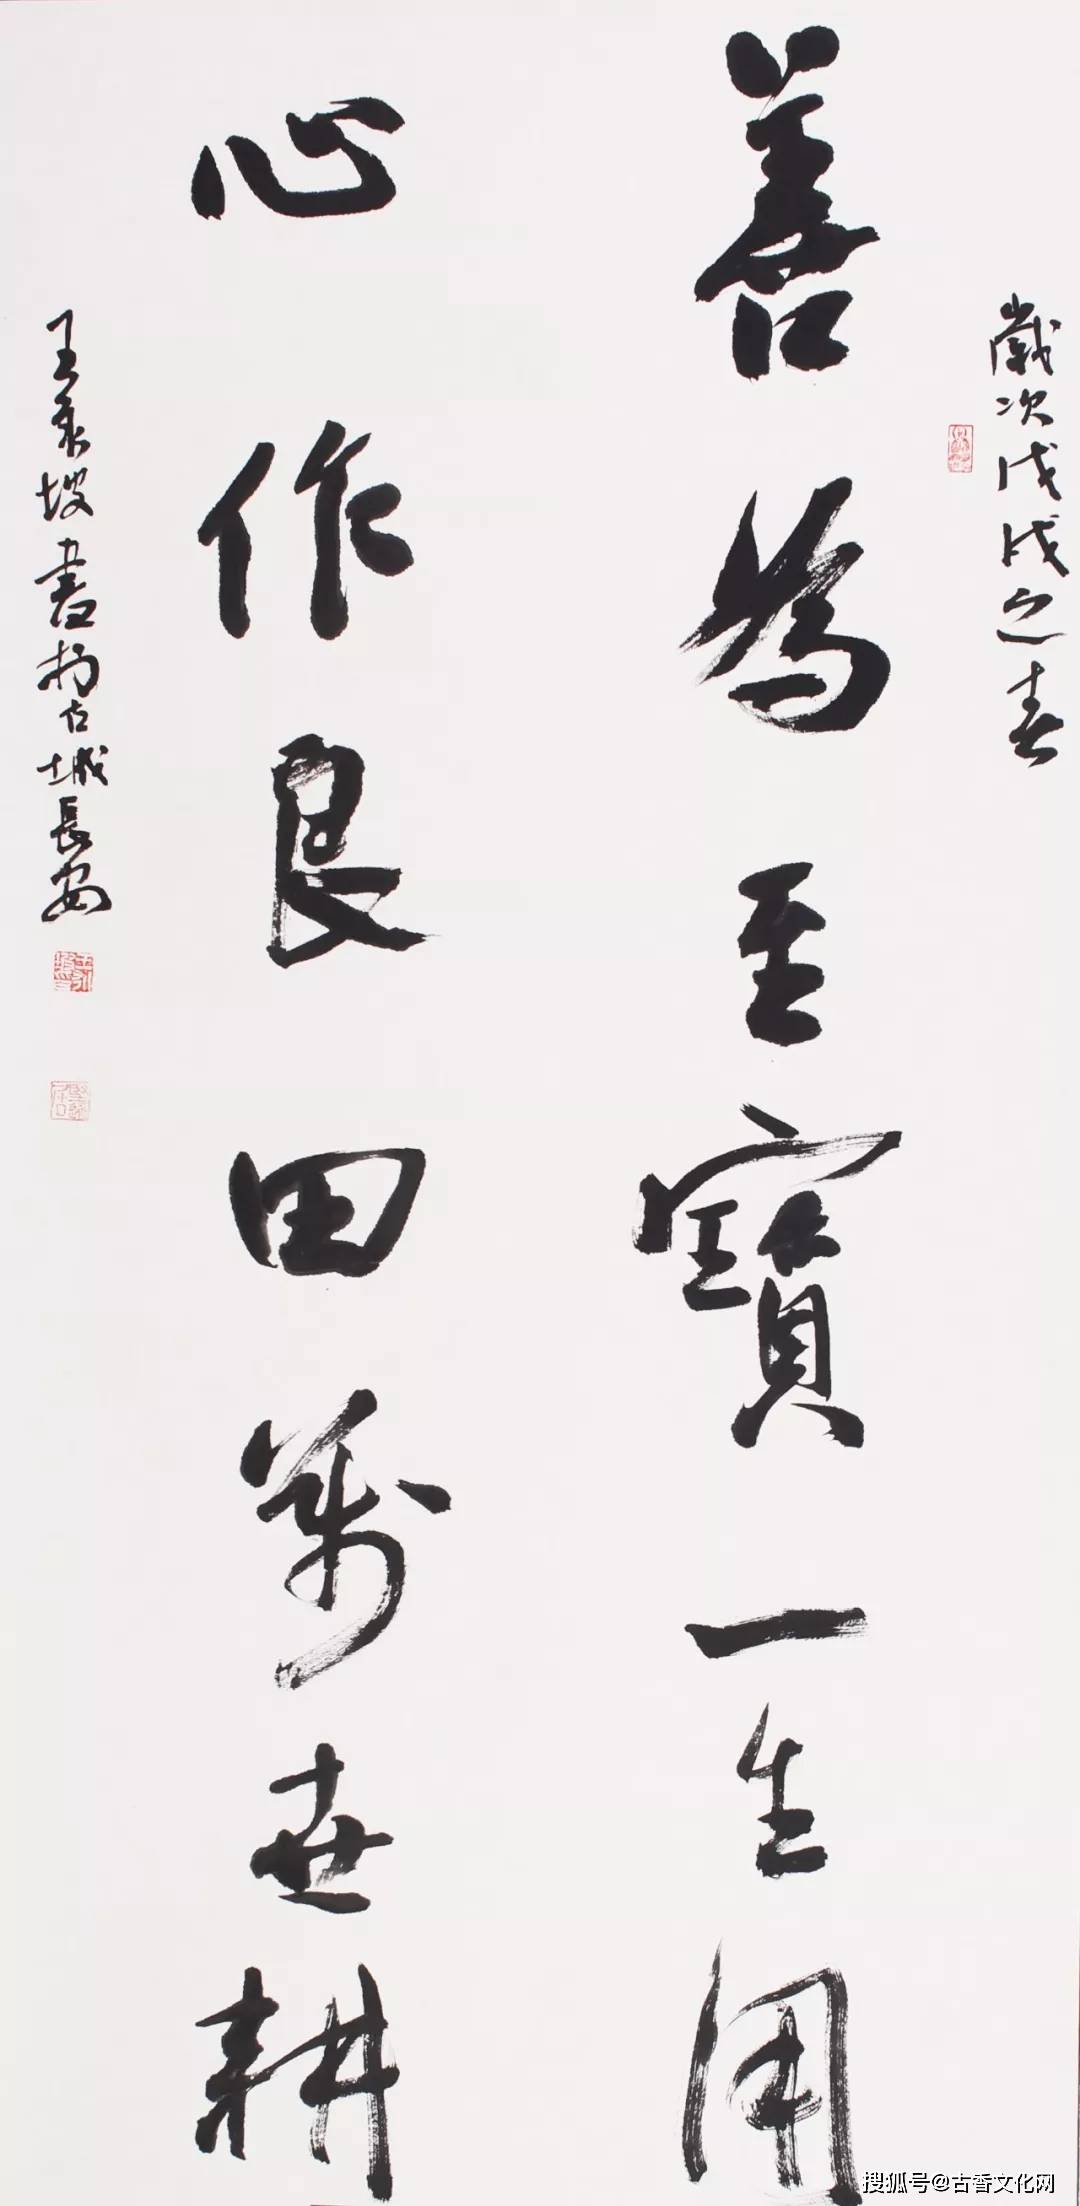 歲次戊戌之春
善為至寶一生用
心作良田萬世耕
王永坡書於古城長安
搜狐号@古香文化网